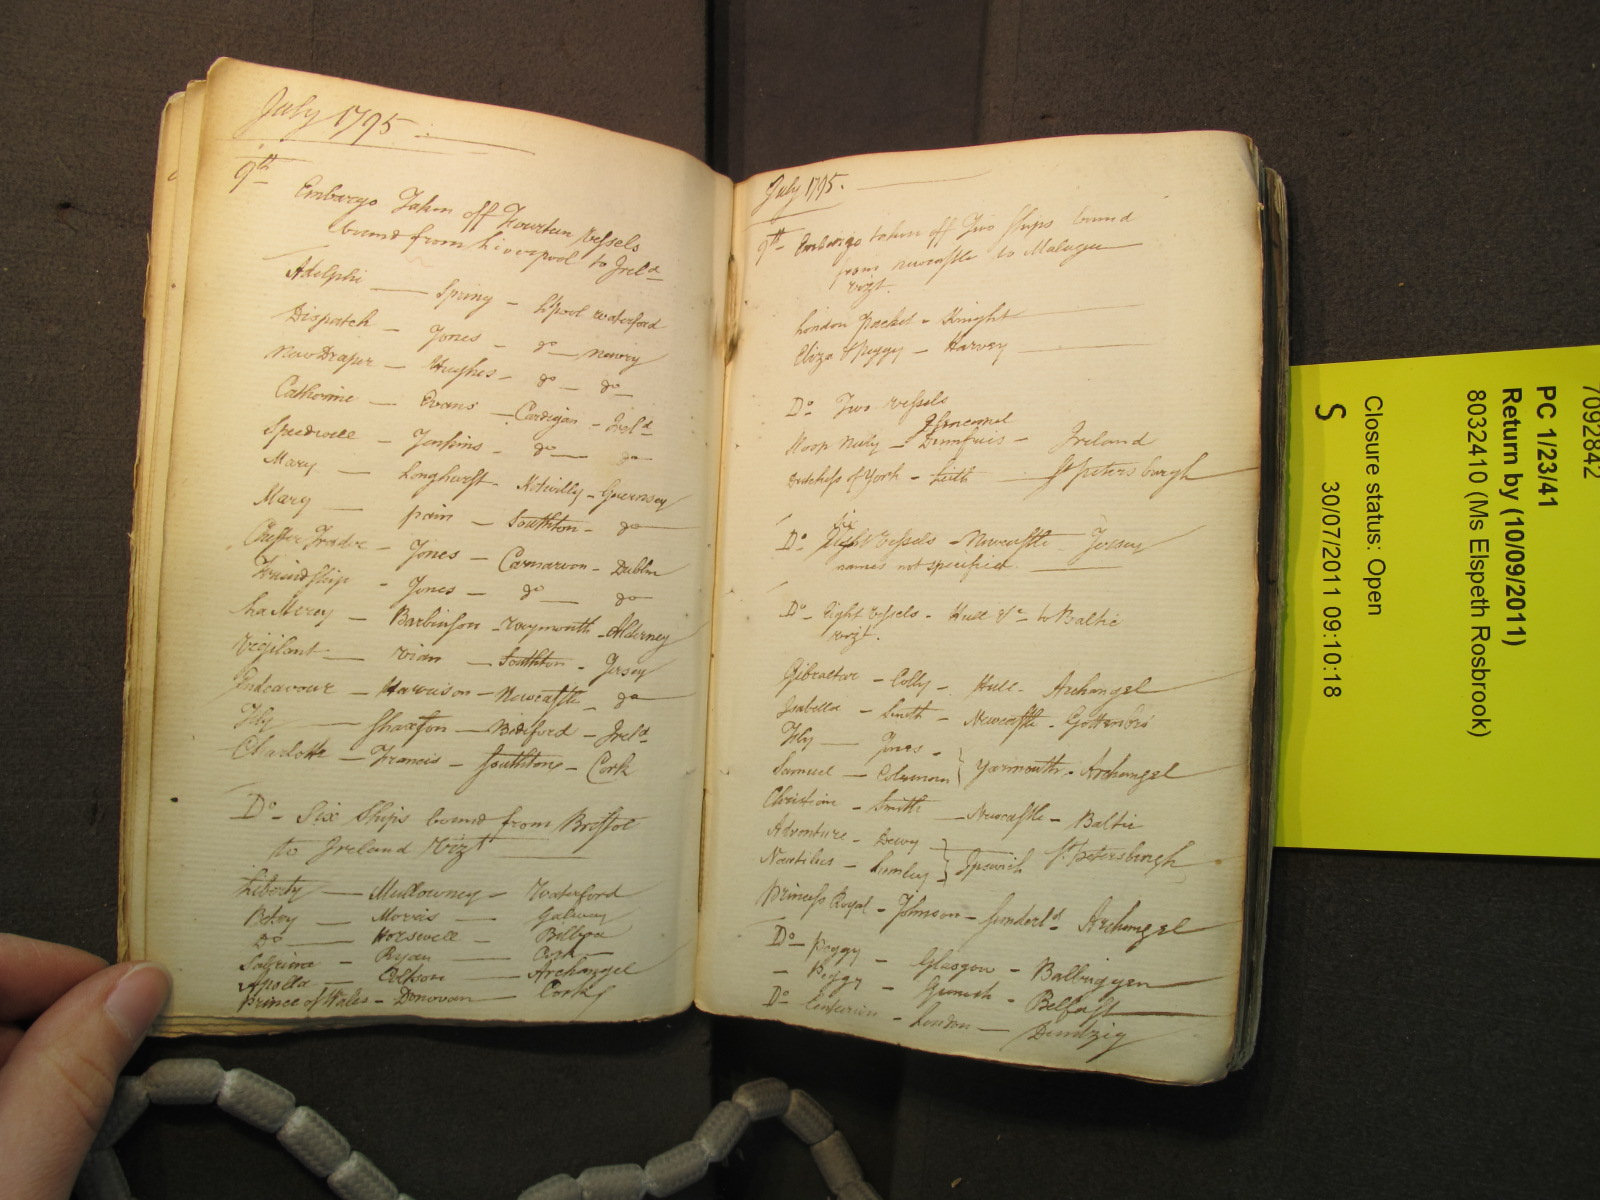 July 1795
9th
Embargo Taken off Fourteen Vessels
bound from Liverpool to Ireld
Adelphi — Spring — Lpool Waterford
Dispatch — Jones — do — Newry
New Draper — Hughes — do — do
Catherine — Evans — Cardigan — Ireld
Speedwell — Jenkins — do — do
Mary — Longhurst — — Guernsey
Mary — Pain — Southton — do
Chester Trader — Jones — Carnarvon — Dublin
Friendship — Jones — do — do
La Mercy — Barbinson — Weymouth — Alderney
Vigilant — Vian — Southton — Jersey
Endeavour — Harrison — Newcastle — do
Fly — Shaxton — Bideford — Ireld
Charlotte — Francis — Southton — Cork
Do — Six Ships bound from Bristol
to Ireland Vizt
Liberty — Mullowney — Waterford
Betsy — Morris — Galway
Do — Horswell — Bilboa
Sabrina — Ryan — Cork
Apollo — Coltson — Archangel
Prince of Wales — Donovan — Cork
July 1795.
9th Embargo taken off Two Ships bound
from Newcastle to Malaga
vizt.
London Packet — Knight
Eliza & Peggy — Harvey
Do Two Vessels
Dumfries — Ireland
Dutchess of York — Leith — St Petersburgh
Six
Do Vessels — Newcastle — Jersey
names not specified
Do Eight Vessels — Hull &c to Baltic
vizt.
Gibraltar — Colly — Hull — Archangel
Isabella — Smith — Newcastle — Gottenbro
Fly — Jones
Samuel — Coleman } Yarmouth — Archangel
Christian — Smith — Newcastle — Baltic
Adventure — Dewy
Nautilus — Lumley } Ipswich St Petersburgh
Princess Royal — Johnson — Sunderld — Archangel
Do — Peggy — Glasgow — Balbriggen
— Peggy — Greenock — Belfast
Do Centurion — London — Dandzig
7092842
PC 1/23/41
Return by (10/09/2011)
8032410 (Ms Elspeth Rosbrook)
Closure status: Open
S 30/07/2011 09:10:18